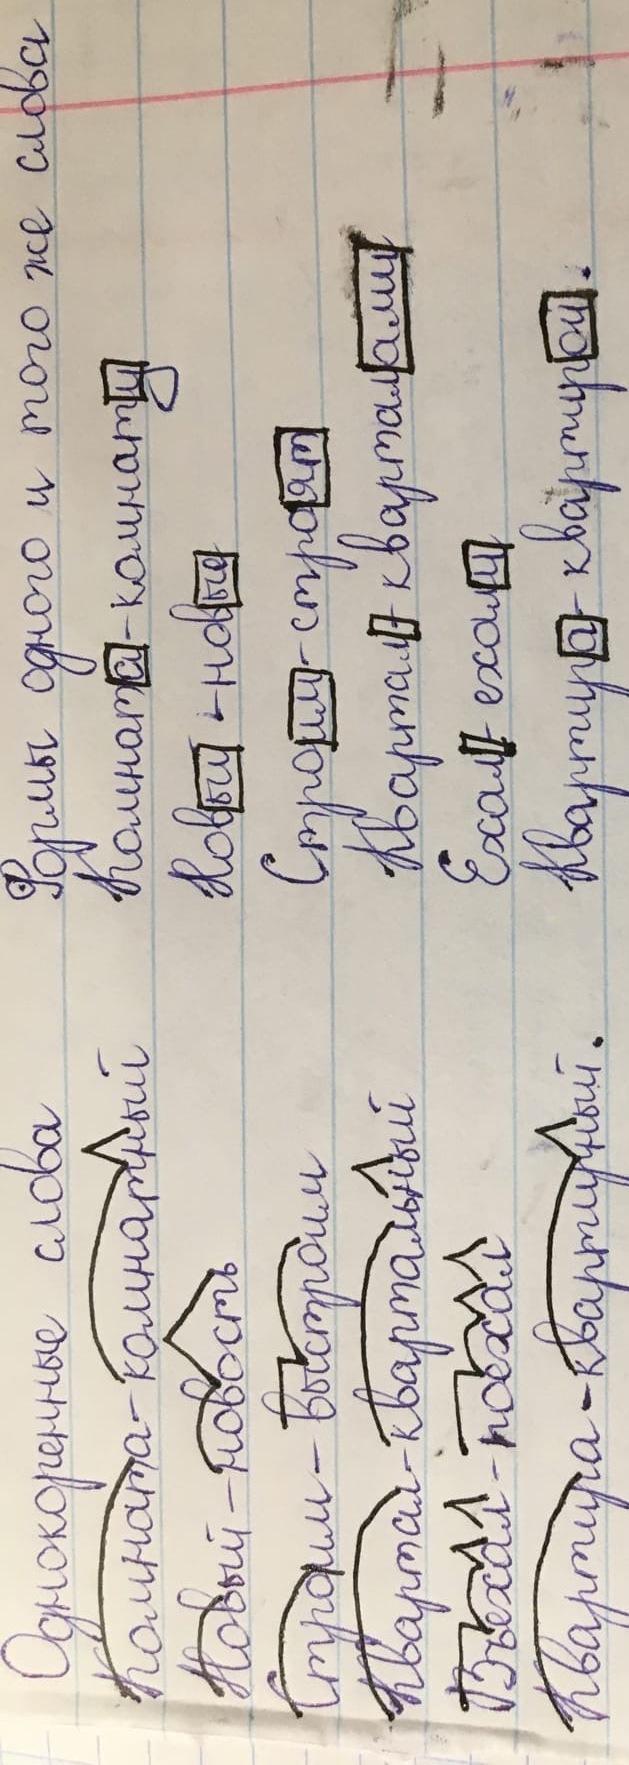 Однокоренные слова Формы одного и того же слова
Комната-комнатный Комната-комнату
Новый-новость Новый-новые
Строим-выстроим Строим-строят
Квартал-квартальный Квартал-кварталами
Въехал-поехал Ехал-ехали
Квартира-квартирный. Квартира-квартирой.